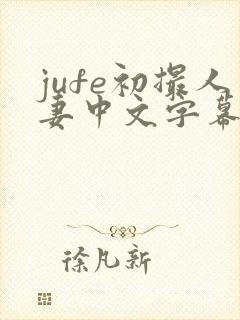 jufe初撮人
妻中文字幕
徐凡新